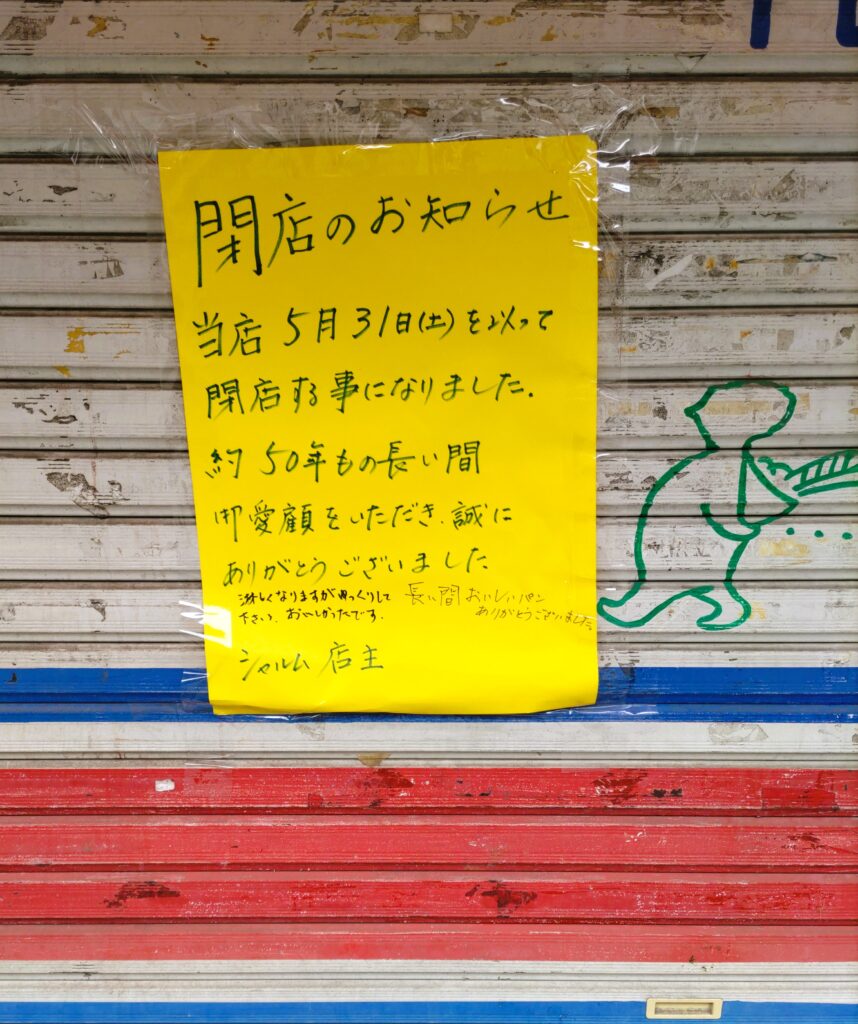 閉店のお知らせ
当店 5月31日(土)を以って
閉店する事になりました.
約 50年もの長い間
御愛顧をいただき.誠に
ありがとうございました
淋しくなりますがゆっくりして
下さい、おいしかったです.
長い間おいしいパン
ありがとうございました。
シャルム 店主